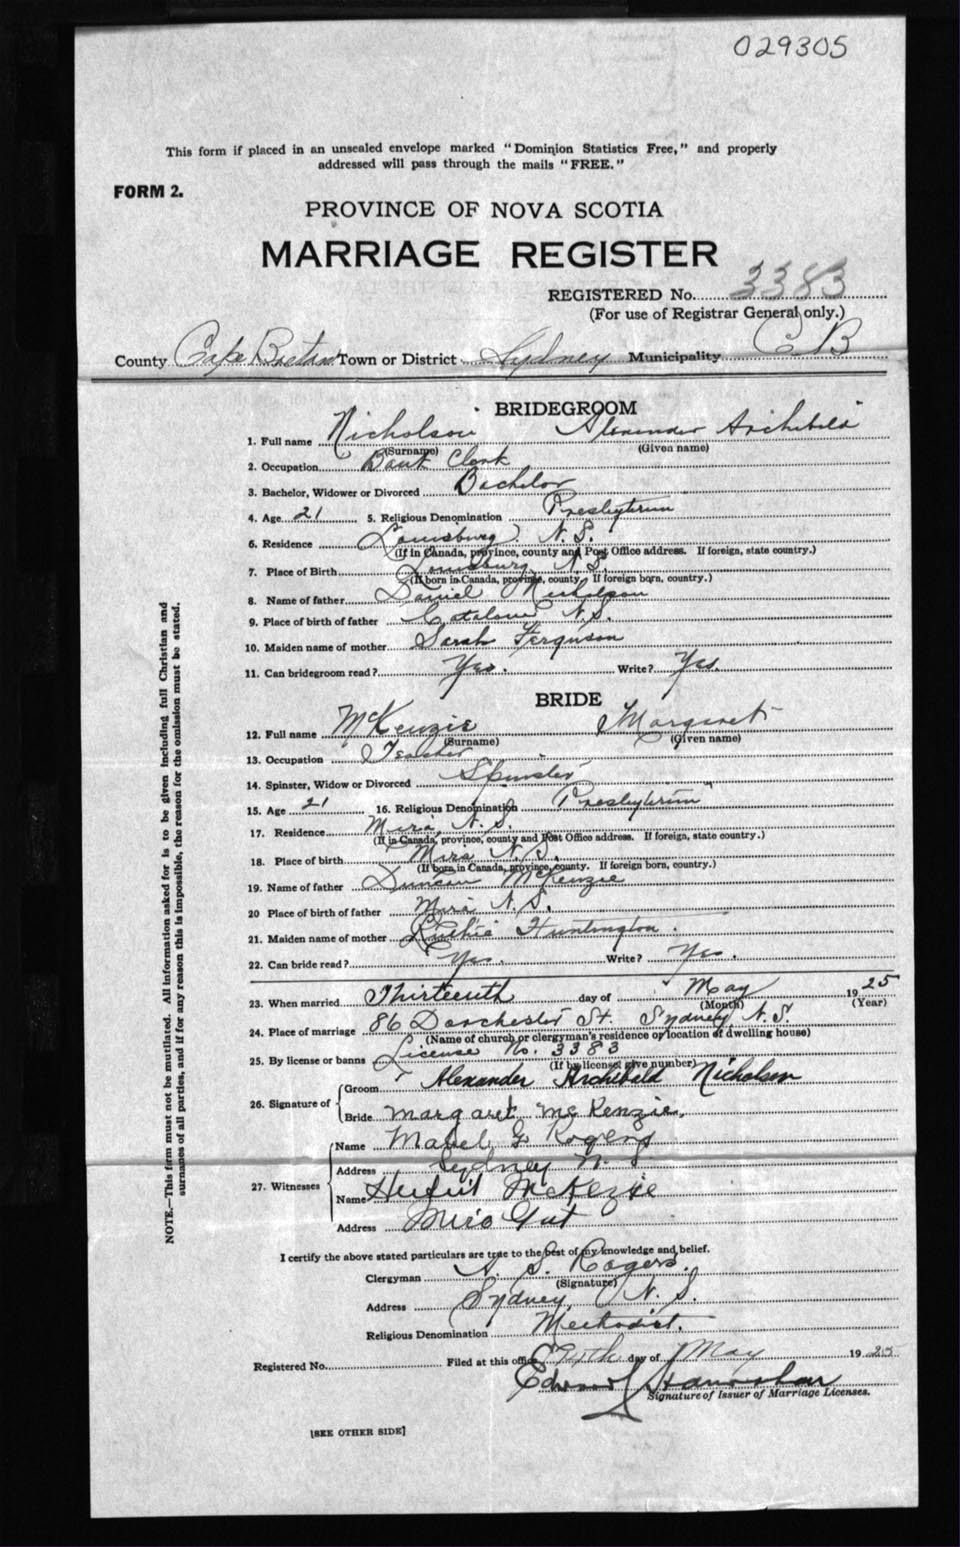 029305
This form if placed in an unsealed envelope marked "Dominion Statistics Free," and properly
addressed will pass through the mails "FREE."
FORM 2.
PROVINCE OF NOVA SCOTIA
MARRIAGE REGISTER
REGISTERED No. 3383
(For use of Registrar General only.)
County Cape Breton Town or District Sydney Municipality C B
BRIDEGROOM
1. Full name Nicholson Alexander Archibald
(Surname) (Given name)
2. Occupation Bank Clerk
3. Bachelor, Widower or Divorced Bachelor
4. Age 21 5. Religious Denomination Presbyterian
6. Residence Louisburg N. S.
(If in Canada, province, county and Post Office address. If foreign, state country.)
7. Place of Birth Louisburg N. S.
(If born in Canada, province, county. If foreign born, country.)
8. Name of father Daniel Nicholson
9. Place of birth of father Catalone N. S.
10. Maiden name of mother Sarah Ferguson
11. Can bridegroom read? Yes. Write? Yes.
BRIDE
12. Full name McKenzie Margaret
(Surname) (Given name)
13. Occupation Teacher
14. Spinster, Widow or Divorced Spinster
15. Age 21 16. Religious Denomination Presbyterian
17. Residence Mira, N. S.
(If in Canada, province, county and Post Office address. If foreign, state country.)
18. Place of birth Mira N. S.
(If born in Canada, province, county. If foreign born, country.)
19. Name of father Duncan McKenzie
20 Place of birth of father Mira N. S.
21. Maiden name of mother Huntington.
22. Can bride read? Yes. Write? Yes.
23. When married Thirteenth day of May 1925
(Month) (Year)
24. Place of marriage 86 Dorchester St. Sydney, N. S.
(Name of church or clergyman's residence or location of dwelling house)
25. By license or banns License No. 3383
(If by license, give number)
26. Signature of Groom Alexander Archibald Nicholson
Bride Margaret McKenzie.
27. Witnesses Name Mabel G Rogers
Address Sydney N. S
Name McKenzie
Address Mira Gut
I certify the above stated particulars are true to the best of my knowledge and belief.
Clergyman A. S. Rogers.
(Signature)
Address Sydney N. S.
Religious Denomination Methodist.
Registered No. Filed at this office day of May 1925
Edward
Signature of Issuer of Marriage Licenses.
[SEE OTHER SIDE]
NOTE.—This form must not be mutilated. All information asked for is to be given including full Christian and
surnames of all parties, and if for any reason this is impossible, the reason for the omission must be stated.